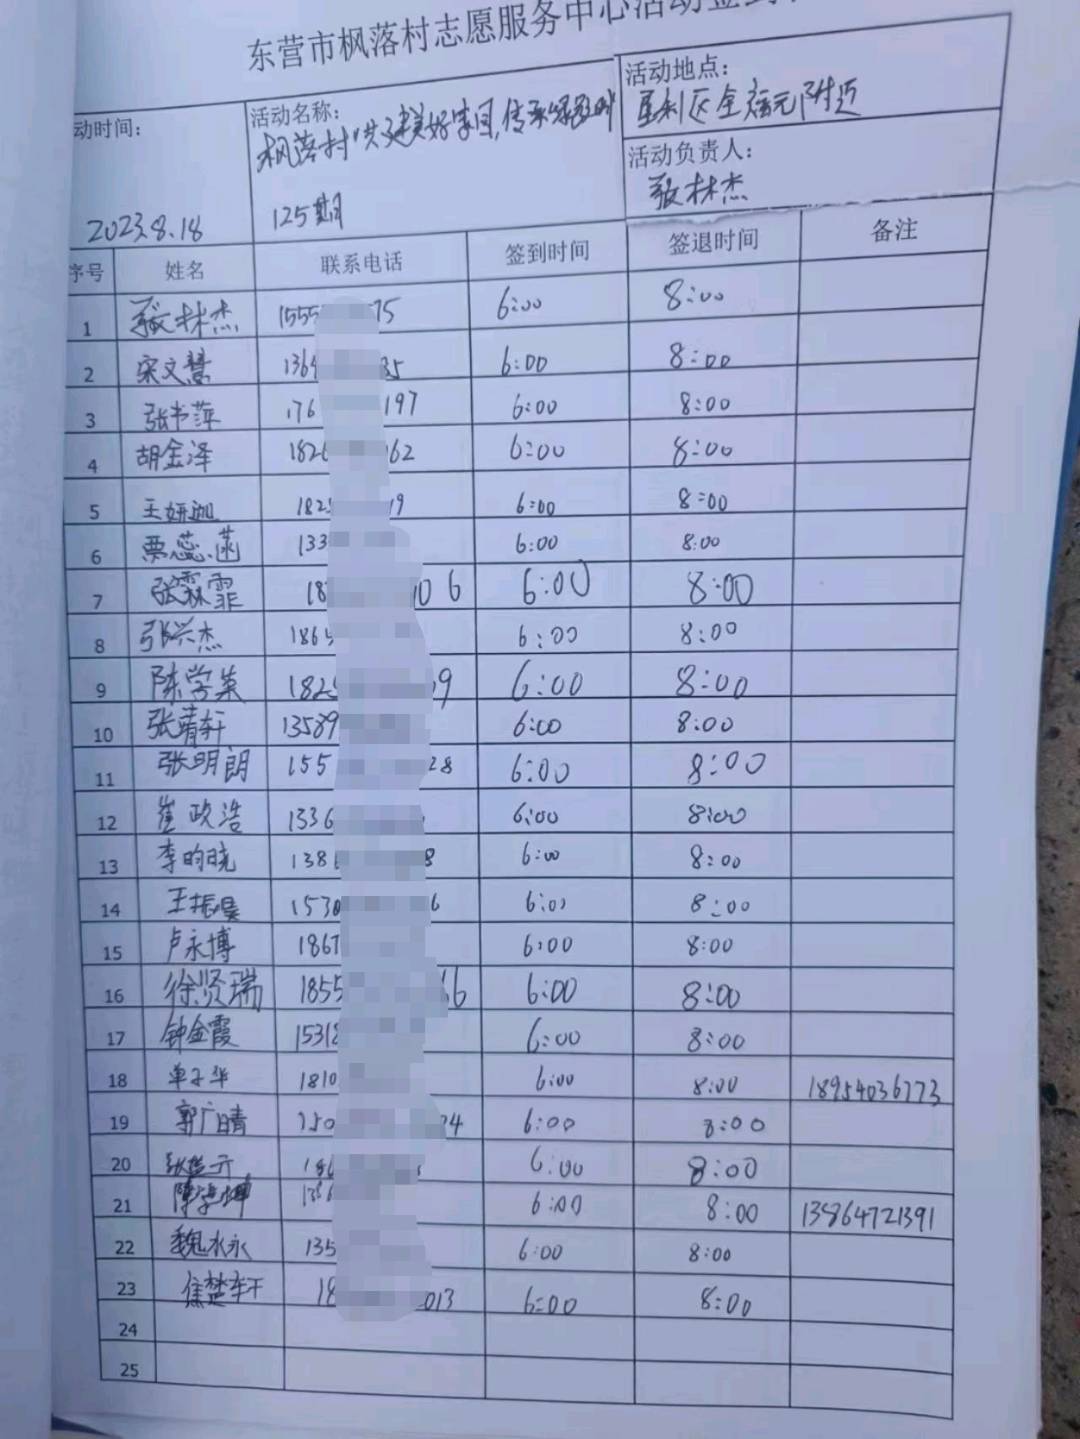 东营市枫落村志愿服务中心活动签到
动时间:
2023.8.18
活动名称:
枫落村"共建美好家园,传承
125期
活动地点:
垦利区全福元附近
活动负责人:
张林杰
序号 姓名 联系电话 签到时间 签退时间 备注
1 张林杰 1555 75 6:00 8:00
2 宋文慧 136 35 6:00 8:00
3 张书萍 176 197 6:00 8:00
4 胡金泽 182 62 6:00 8:00
5 王妍迦 182 19 6:00 8:00
6 栗蕊菡 133 6:00 8:00
7 张霖霏 18 06 6:00 8:00
8 张兴杰 186 6:00 8:00
9 陈学英 182 39 6:00 8:00
10 张靖轩 13589 6:00 8:00
11 张明朗 155 28 6:00 8:00
12 崔政浩 1336 6:00 8:00
13 李昀晓 138 8 6:00 8:00
14 王振昊 1530 6 6:00 8:00
15 卢永博 1867 6:00 8:00
16 徐贤瑞 1855 66 6:00 8:00
17 钟金霞 1531 6:00 8:00
18 单子华 1810 6:00 8:00 18954036773
19 郭广晴 150 24 6:00 8:00
20 张 186 6:00 8:00
21 陈 坤 6:00 8:00 13864721391
22 魏水永 135 6:00 8:00
23 焦楚轩 18 013 6:00 8:00
24
25